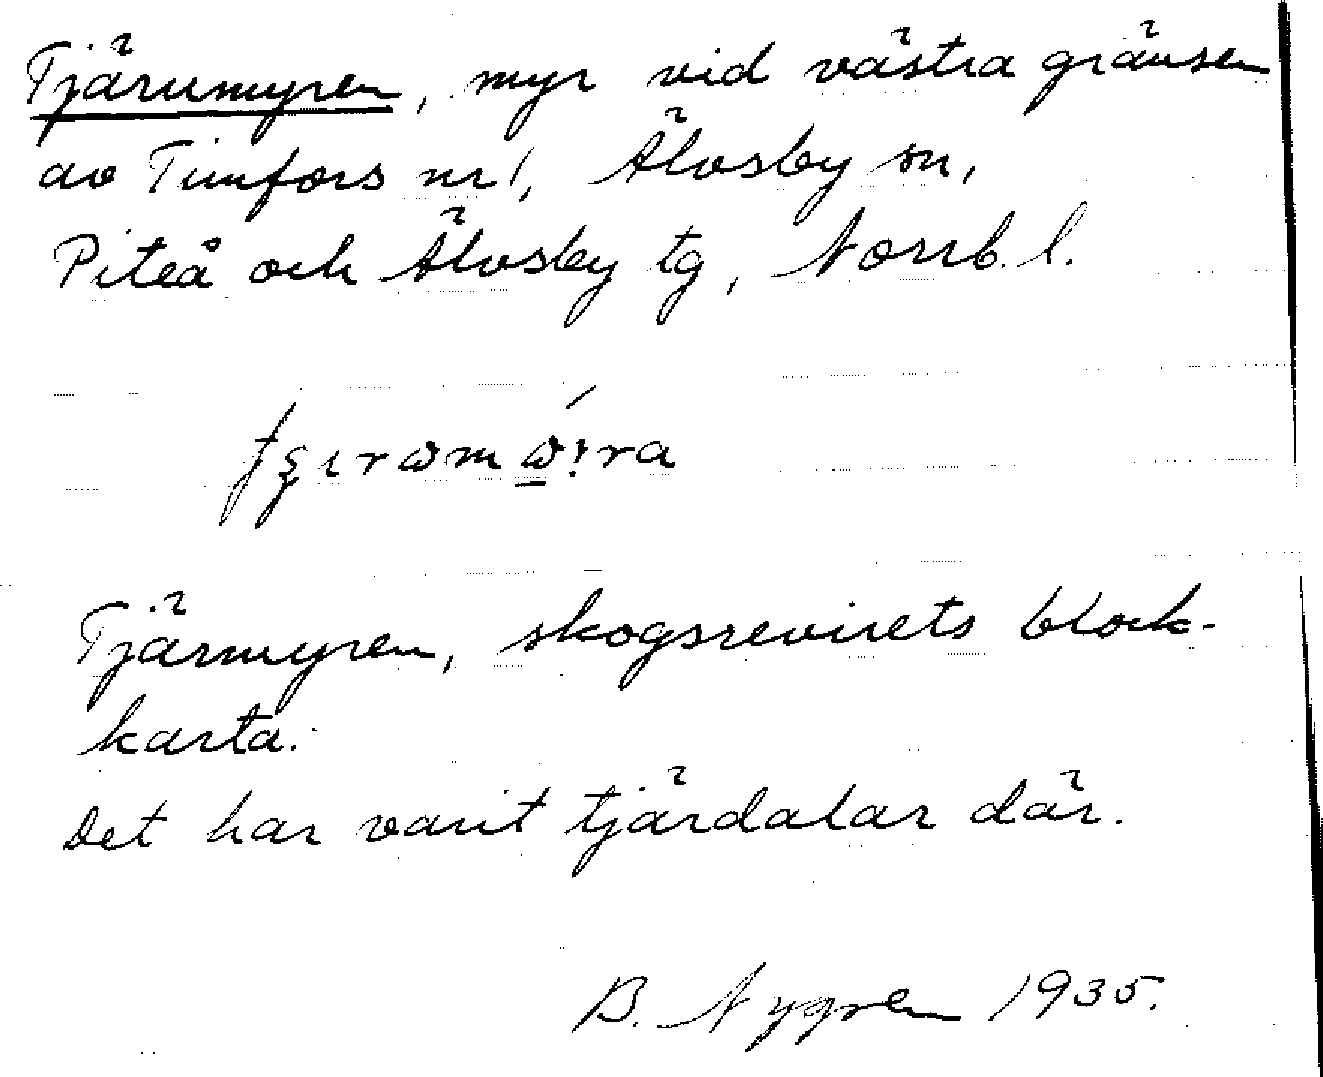 Tjärumyren, myr vid västra gränsen
av Timfors nr 1, Älvsby sn,
Piteå och Älvsby tg, Norrb. l.
Tjärmyren, skogsrevirets block-
karta.
Det har varit tjärdalar där.
B. Nygren 1935.